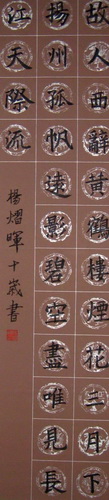 故人西辭黃鶴樓煙花三月下
揚州孤帆遠影碧空盡唯見長
江天際流
楊熠暉十歲書